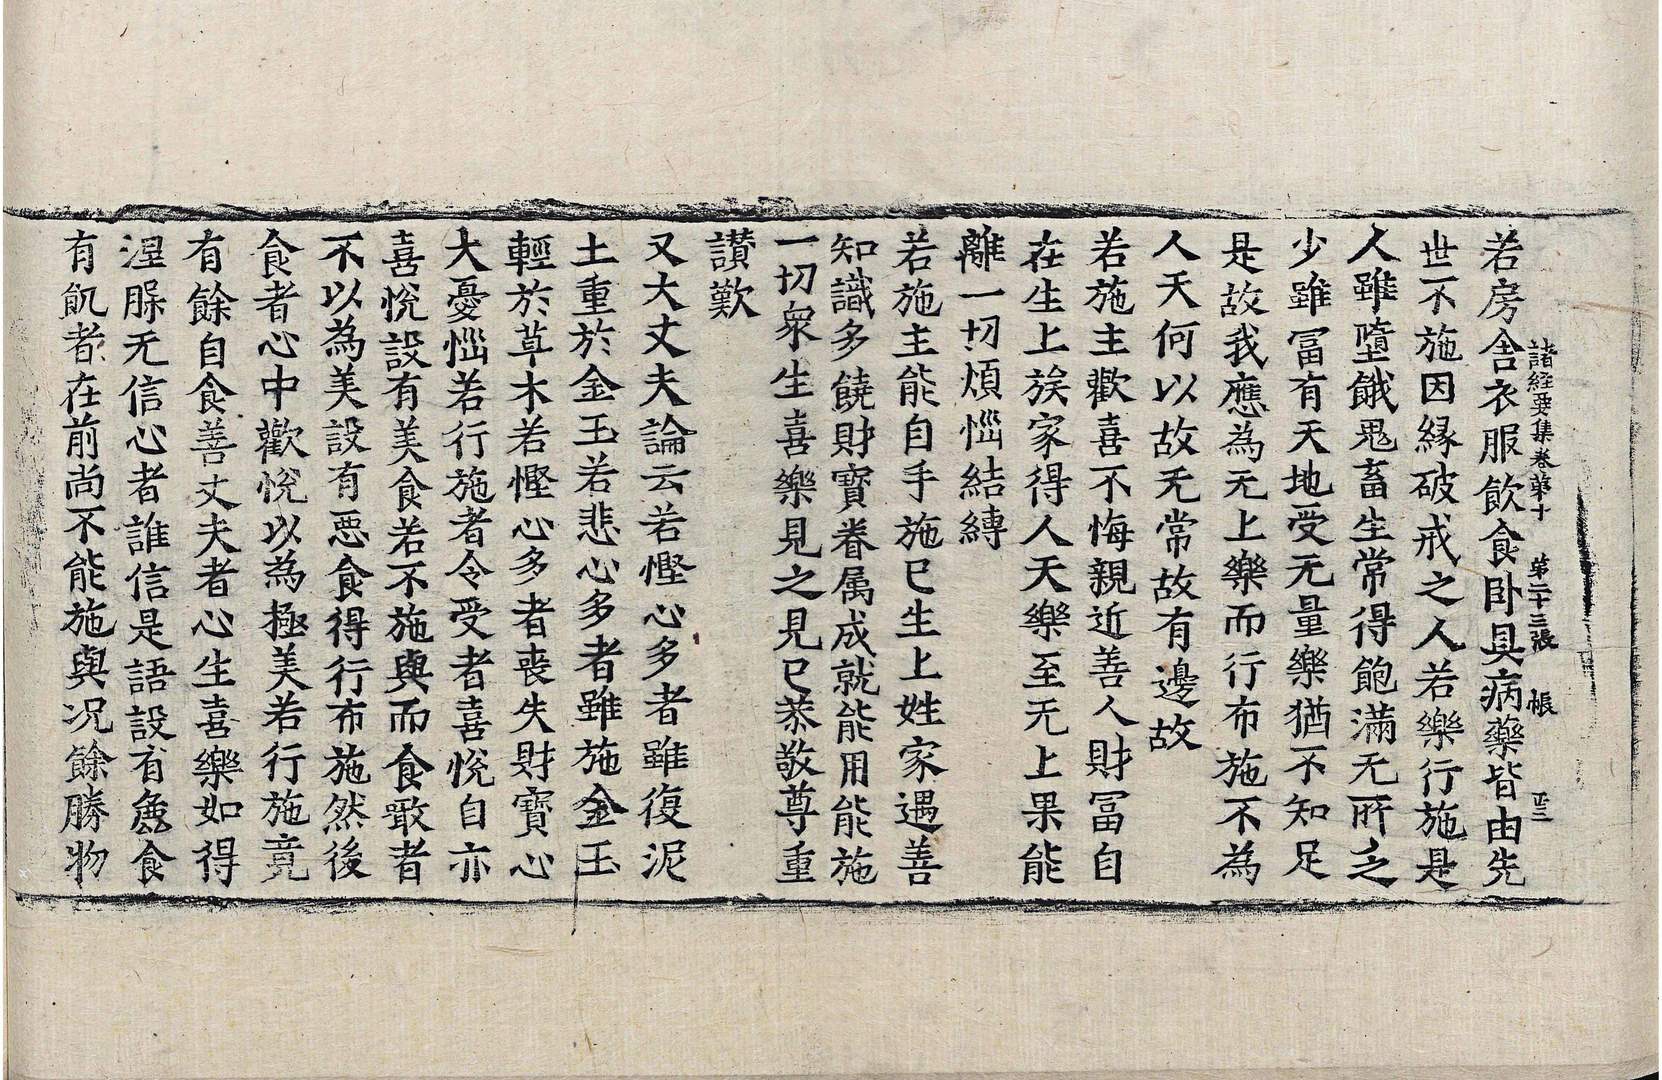 諸經要集卷第十 第二十三張 帳
若房舍衣服飲食卧具病藥皆由先
世不施因縁破戒之人若樂行施是
人雖墮餓鬼畜生常得飽滿无所乏
少雖冨有天地受无量樂猶不知足
是故我應為无上樂而行布施不為
人天何以故无常故有邊故
若施主歡喜不悔親近善人財冨自
在生上族家得人天樂至无上果能
離一切煩惱結縛
若施主能自手施已生上姓家遇善
知識多饒財寶眷属成就能用能施
一切衆生喜樂見之見已恭敬尊重
讃歎
又大丈夫論云若慳心多者雖復泥
土重於金玉若悲心多者雖施金玉
輕於草木若慳心多者喪失財寶心
大憂惱若行施者令受者喜悅自亦
喜悅設有美食若不施與而食噉者
不以為美設有惡食得行布施然後
食者心中歡悅以為極美若行施竟
有餘自食善丈夫者心生喜樂如得
涅脲无信心者誰信是語設有麁食
有飢者在前尚不能施與况餘勝物